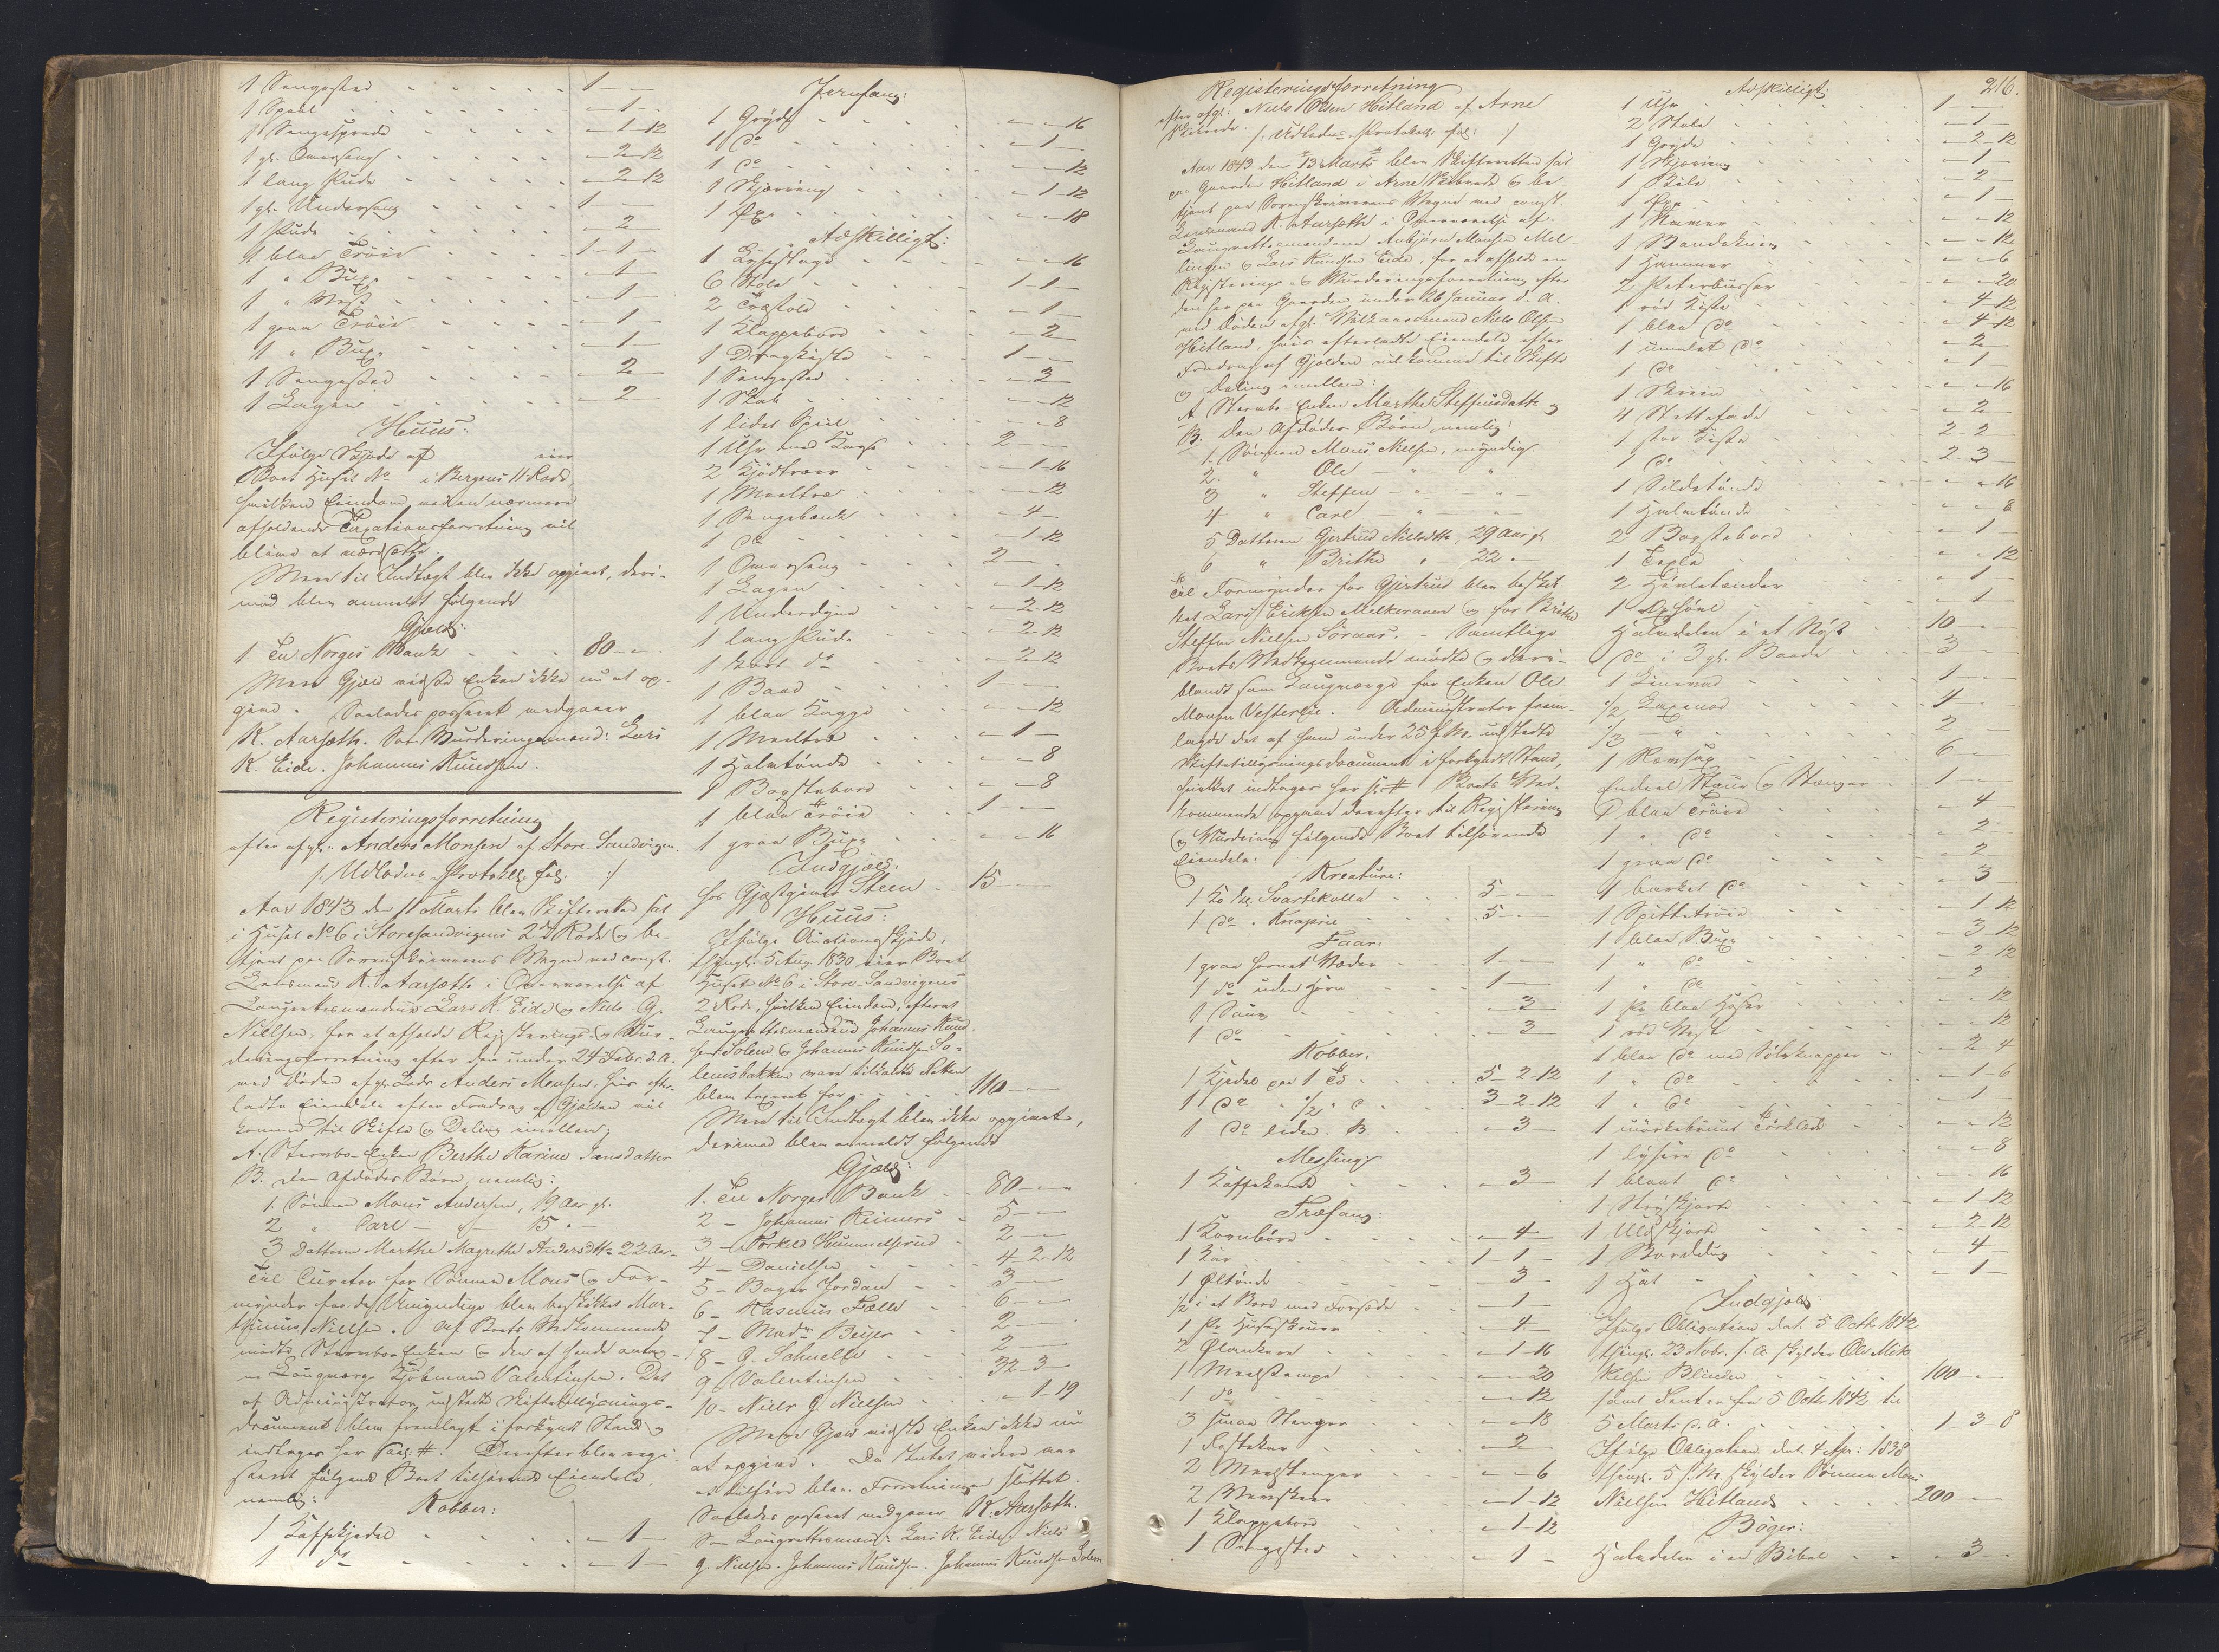 1 Sengested 1 - -
1 Speil - 1 -
1 Sengespræde - 1 - 12
1 gl. Overseng - 2 - 12
1 lang Pude - 2 - 12
1 gl. Underseng 1 - -
1 Pude - 2 -
1 blaa Trøie 1 - 1 -
1 " Buxe - 1 -
1 " Vest - 1 -
1 graa Trøie - 1 -
1 " Buxe - 1 -
1 Sengested - 2 -
1 Lagen - 2 -
Huus:
Ifølge Skjøde af eier
Boet Huset No i Bergens 11 Rode
hvilken Eiendom ved en nærmere
afholdende Taxationsforretning vil
blive at værdsætte.
Mere til Indtægt blev ikke opgivet, deri-
mod blev anmeldt følgende
Gjæld:
1. Til Norges Bank 80 - -
Mere Gjæld vidste Enken ikke nu at op-
give. Saaledes passeret medgaaer
K. Aarsæth. Som Vurderingsmænd: Lars
K. Eide. Johannes Knudsen.
Registeringsforretning
efter afgl. Anders Monsen af Store-Sandvigen.
/: Udlodns. Protokll. fol. :/
Aar 1843 den 11 Marts blev Skifteretten sat
i Huset No 6 i Storesandvigens 2den Rode og be-
tjent paa Sorenskriverens Vegne ved const.
Lensmand K. Aarsæth i Overværelse af
Laugrettesmændene Lars K. Eide og Niels G.
Nielsen, for at afholde Registerings- og Vur-
deringsforretning efter den under 24 Febr. d. A.
ved Døden afgl. Lods Anders Monsen, hvis efter-
ladte Eiendele efter Fradrag af Gjælden vil
komme til Skifte og Deling imellem;
A. Stervbo-Enken Berthe Karine Jensdatter
B. Den Afdødes Børn, nemlig:
1. Sønnen Mons Andersen, 19 Aar gl.
2 " Carl — " — 15 " —
3 Datteren Marthe Magrethe Andersdttr 22 Aar-
Til Curator for Sønnen Mons og For-
mynder for det Umyndige blev beskikket Mar-
thinus Nielsen. Af Boets Vedkommende
mødte Stervbo-Enken og den af hende antag-
ne Laugværge Kjøbmand Valentinsen. Det
af Administrator udstædte Skiftetillysnings-
document blev fremlagt i forkyndt Stand og
indtages her saal. #. Derefter blev regi-
streret følgende Boet tilhørende Eiendele,
nemlig: Kobber:
1 Kaffekjedel - 1 -
1 do - 1 -
Jernfang:
1 Gryde - - 16
1 do - 1 -
1 do - - 12
1 Skjæreing - 1 - 12
1 Øxe - - 18
Adskilligt:
1 Lysestage - - 16
6 Stole 1 - 1 -
2 Træstole - 1 -
1 Klappebord - 2 -
1 Dragkiste 1 - -
1 Sengested - 3 -
1 Skab - - 12
1 lidet Speil - - 8
1 Uhr med Kasse 2 - -
2 Kjødtræer - 1 - 16
1 Meeltræ - - 12
1 Sengebænk - 4 -
1 do - 1 - 12
1 Overseng 2 - -
1 Lagen - 1 - 12
1 Underdyne - 2 - 12
1 lang Pude - 2 - 12
1 kort do - 2 - 12
1 Baad 1 - -
1 blaa Kagge - - 12
1 Meeltræ - 1 -
1 Halvtønde - - 8
1 Bagstebord - - 8
1 blaa Trøie 1 - -
1 graa Buxe - - 16
Indgjæld:
hos Gjæstgiver Steen 15 - -
Huus:
Ifølge Auctionsskjøde,
thingl. 5 Aug. 1830 eier Boet
Huset No 6 i Store-Sandvigens
2 Rode, hvilken Eiendom, efterat
Laugrettesmændene Johannes Knud-
sen Solem og Johannes Knudsen So-
lemsbakken vare tilkaldte
blev taxeret for 110 - -
Mere til Indtægt blev ikke opgivet,
derimod blev anmeldt følgende
Gjæld:
1. Til Norges Bank 80 - -
2 - Johannes Reimers 5 - -
3 - Torkild Hummelsund 2 - -
4 - Danielsen 4 - 2 - 12
5 - Bager Jordan 3 - -
6 - Rasmus Fælle 6 - -
7 - Madm Beyer 2 - -
8 - G. Schnelle 2 - -
9 - Valentinsen 32 - 3 -
10 - Niels G. Nielsen - 1 - 19
Mere Gjæld vidste Enken ikke nu
at opgive. Da Intet videre var
at tilføre blev Forretningen sluttet.
Saaledes passeret medgaaer K. Aarsæth.
Som Laugrettesmænd: Lars K. Eide. Niels
G. Nielsen. Johannes Knudsen. Johannes Knudsen Solem.
216.
Registeringsforretning
efter afgl. Niels Olsen Hitland af Arne
Skibrede. /: Udlodns. Protokoll. fol: :/
Aar 1843 den 13 Marts blev Skifteretten sat
paa Gaarden Hitland i Arne Skibrede og be-
tjent paa Sorenskriverens Vegne ved const.
Lensmand K. Aarsæth i Overværelse af
Laugrettesmændene Anbjørn Monsen Mel-
lingen og Lars Knudsen Eide, for at afholde en
Registerings- og Vurderingsforretning efter
den her paa Gaarden under 26 Januar d. A.
ved Døden afgl. Vilkaarsmand Niels Olsen
Hitland, hvis efterladte Eiendele efter
Fradrag af Gjælden vil komme til Skifte
og Deling imellem:
A. Stervbo-Enken Marthe Steffensdatter og
B. Den Afdødes Børn, nemlig:
1. Sønnen Mons Nielsen, myndig.
2. " Ole — " — "
3 " Steffen — " — "
4 " Carl — " — "
5 Datteren Gjertrud Nielsdtr, 29 Aar gl.
6 " Brithe " — 22 "
Til Formynder for Gjertrud blev beskik-
ket Lars Eriksen Melkeraaen og for Brithe
Steffen Nielsen Søraas. - Samtlige
Boets Vedkommende mødte og deri-
blandt som Laugværge for Enken Ole
Monsen Vestereie. Administrator frem-
lagde det af ham under 25 f. M. udstædte
Skiftetillysningsdocument i forkyndt Stand,
hvilket indtages her saal. # Boets Ved-
kommende opgave derefter til Registering
og Vurdering følgende Boet tilhørende
Eiendele:
Kreature:
1 Ko kl. Svartekolla 5 - -
1 do " Knapru 5 - -
Faar:
1 graa hornet Væder 1 - -
1 do uden Horn 1 - -
1 Sau - 3 -
1 do - 3 -
Kobber:
1 Kjedel paa 1 Td 5 - 2 - 12
1 do " 1/2 " 3 - 2 - 12
1 do liden - 3 -
Messing:
1 Kaffekande - 3 -
Træfang:
1 Kornbøre - 4 -
1 Kar 1 - 1 -
1 Øltønde - 3 -
1/2 i et Bord med Forsæde - 1 -
1 Pr. - 4 -
2 - 1 - 16
1 Meelstampe - - 20
1 do - - 12
3 smaae Stamper - - 18
1 Rostekar - 2 -
2 - - 6
2 - 1 - 12
1 Klappebord - 1 - 12
1 Sengested - 1 -
Adskilligt:
1 Uhr 1 - -
2 Stole - 1 -
1 Gryde - 2 - 12
1 Skjæreing - 1 -
1 Bile - 2 -
1 Øxe - 1 -
1 Naver - - 12
1 Bandekniv - - 12
1 Hammer - - 6
2 Peterbusser - - 20
1 rød Kiste - 4 - 12
1 blaa do - 4 - 12
1 umalet do - 2 -
1 do - 1 -
1 Skrin - - 16
4 Stettefade - 2 -
1 stor Kiste 2 - 2 -
1 do 2 - 3 -
1 Sildetønde - - 16
1 Halvtønde - - 8
2 Bagstebord - 1 -
1 Texle - - 12
2 - 1 -
1 - 1 -
Halvdelen i et Nøst 10 - -
do i 3 gl. Baade 3 - -
1 1 - -
1/2 Laxevad 4 - -
1/3 — " 2 - -
1 6 - -
Endeel Staur og Stænger 1 - -
1 blaa Trøie - 4 -
1 " do - 2 -
1 graa do - 2 -
1 barket do - 3 -
1 Spittetrøie - 1 - 12
1 blaa Buxe - 3 - 12
1 " do - 2 - 12
1 " do - 2 -
1 Pr. blaa Hoser - - 12
1 rød Vest - - 12
1 blaa do med Sølvknapper - 2 - 4
1 " do - 1 - 6
1 " do - 1 -
1 mørkebrunt Tørklæde - - 12
1 lysere do - - 8
1 blaat do - - 16
1 Strieskjorte - 1 - 12
1 Uldskjorte - 2 - 12
1 Borddug - 4 -
1 Hat - 1 -
Indgjæld:
Ifølge Obligation dat. 5 Octb. 1842
thingl. 23 Novbr. s. A. skylder Ole Mik-
kelsen Blinden 100 - -
samt Renter fra 5 Octb 1842 til
5 Marts d. A. 1 - 3 - 8
Ifølge Obligation dat. 4 Apr: 1838
thingl. 5 s. M. skylder Sønnen Mons
Nielsen Hitland 200 - -
Bøger:
Halvdelen i en Bibel - 3 -